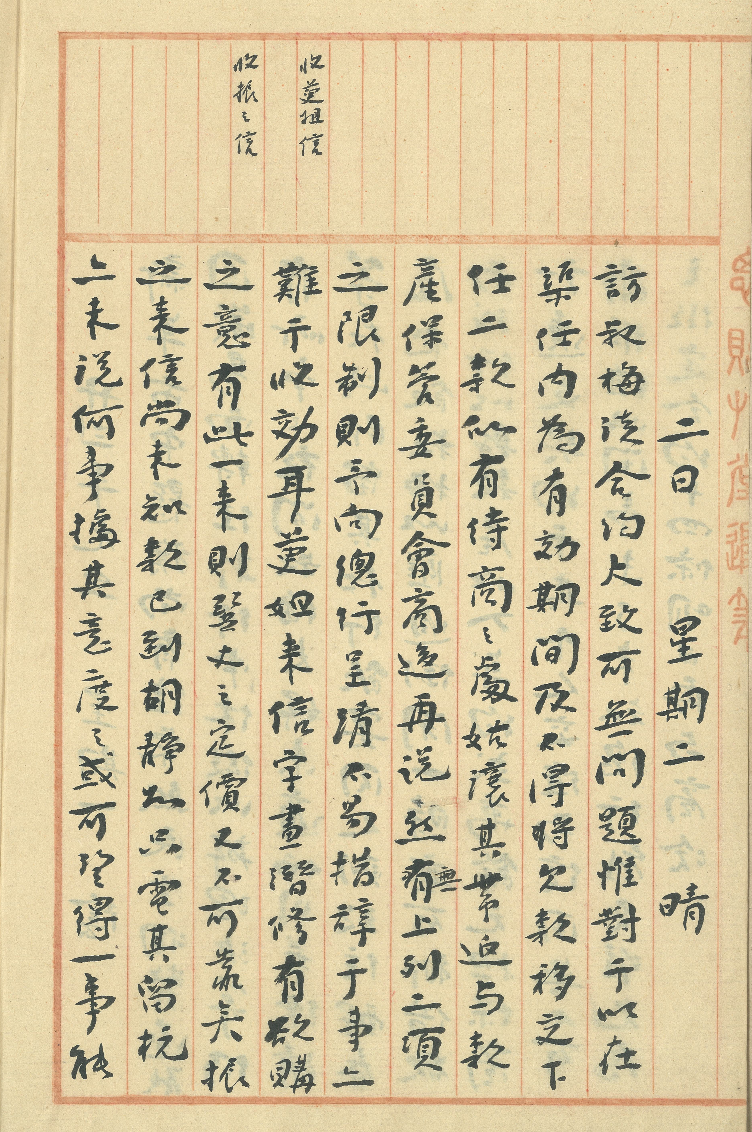 二日　星期二　晴
訪叔梅談合約大致可無問題惟對于以在
渠任内為有効期間及不得將欠款移交下
任二款似有待商之處姑讓其帶迴与款
產保管委員會商後再说然無上列二項
之限制則予向總行呈請不易措辞于事上
難于收効耳蘧姐来信字畫潛修有欲購
之意有此一来則賢丈之定價又不可靠矣振
之来信尚未知款已到胡靜如只電其留杭
亦未说何事據其意度之或可望得一事能
收蘧姐信
收振之信